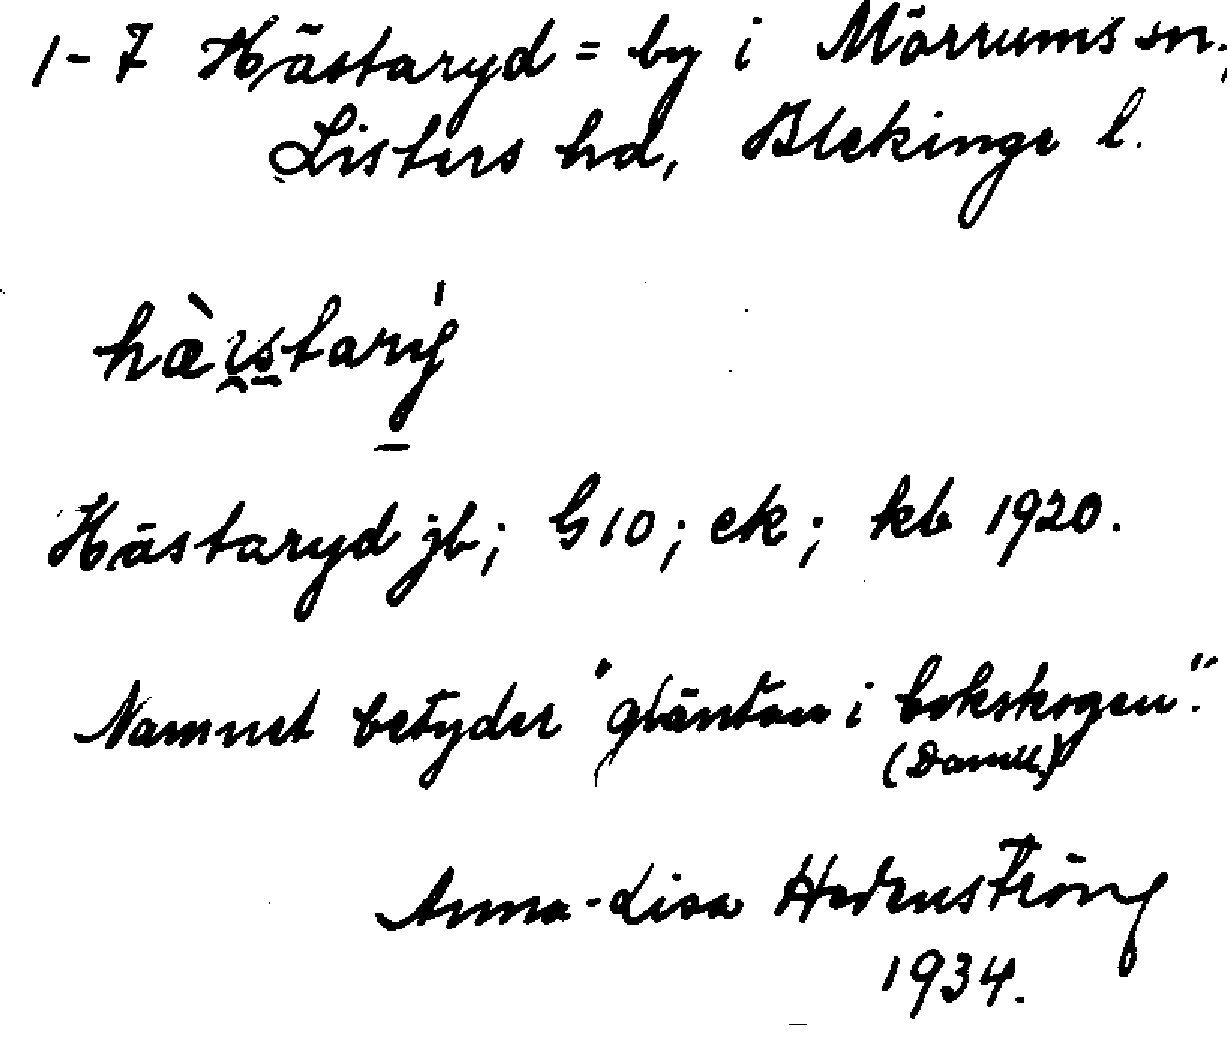 1-7 Hästaryd = by i Mörrums sn.,
Listers hd, Blekinge l.
Hästaryd jb; G10; ek; kb 1920.
Namnet betyder "gläntan i bokskogen".
(Danell)
Anna-Lisa Hedenström
1934.